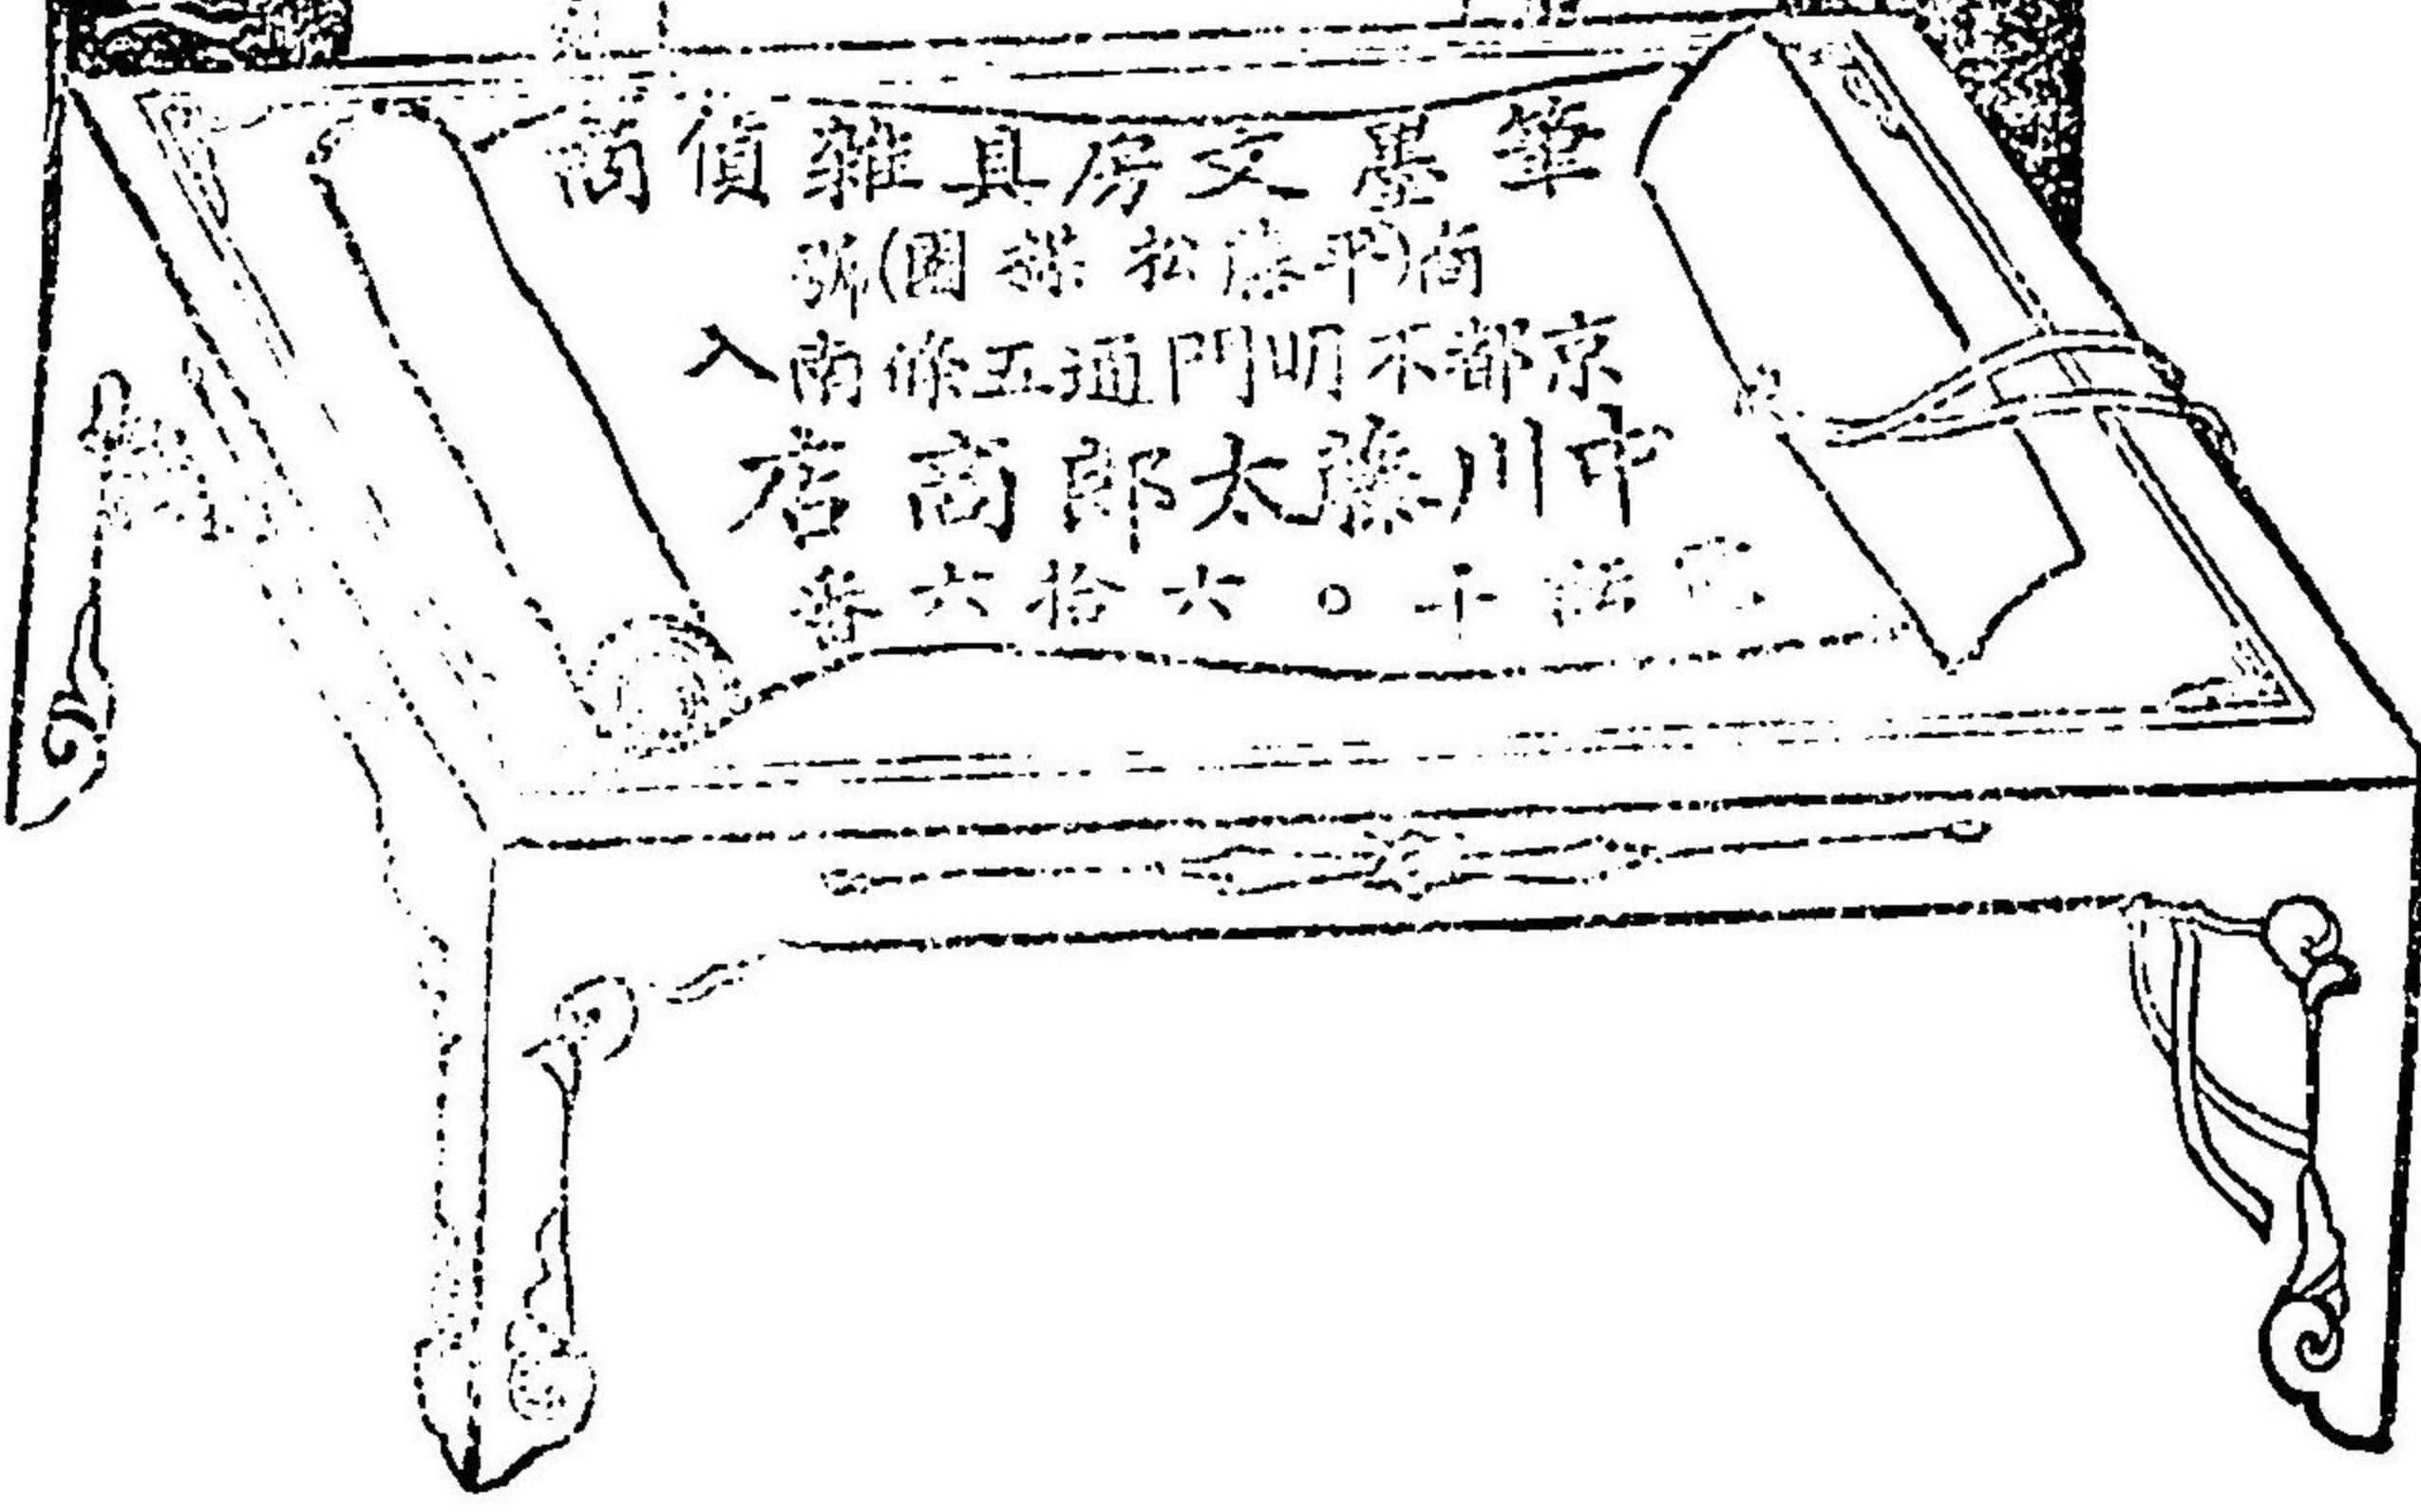 筆墨文房具雜貨商
商(平藤松緑園)號
京都不明門通五條南入
中川藤太郎商店
電話千〇六拾六番